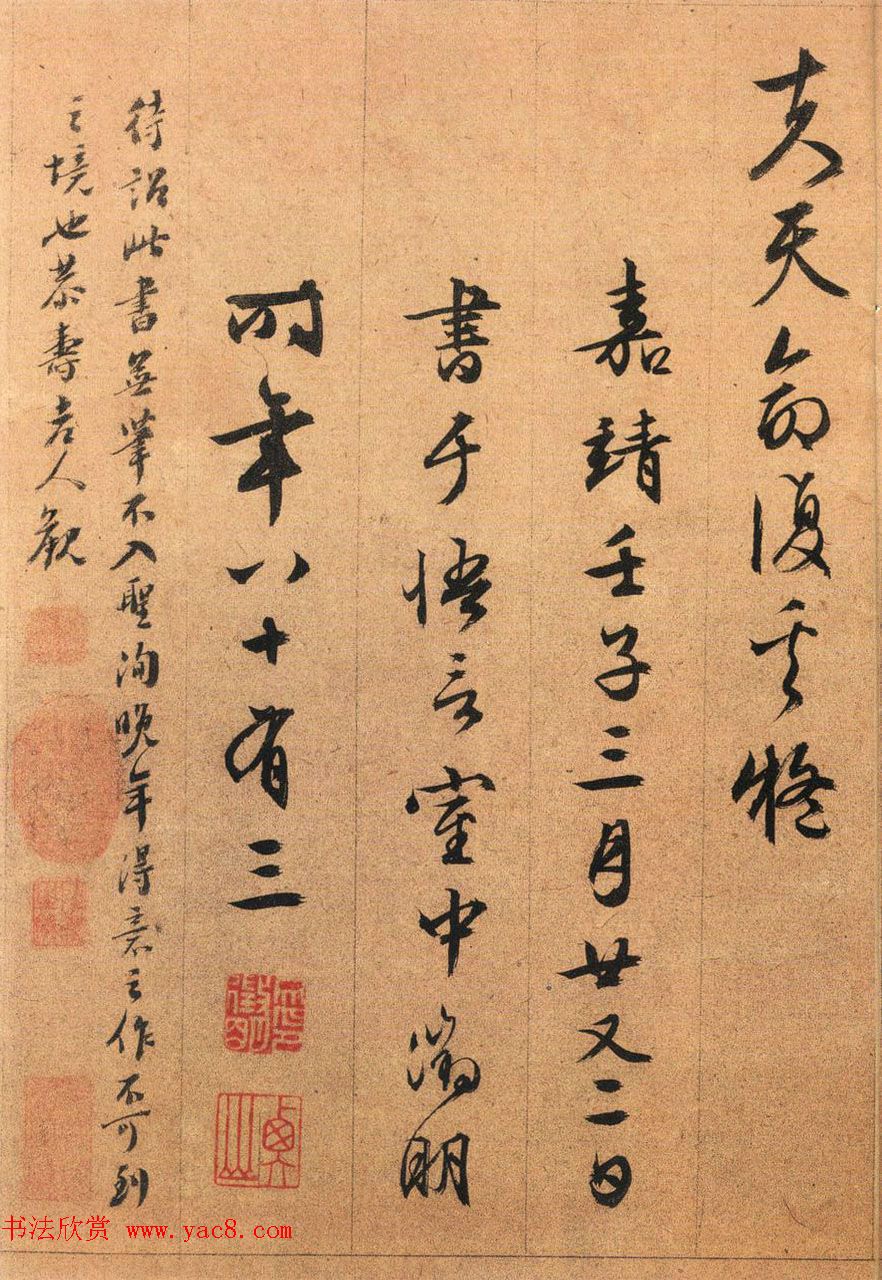 夫天命復奚疑
嘉靖壬子三月廿又二日
書于悟言室中徵明
時年八十有三
待詔此書無筆不入聖洵晚年得意之作不可到
之境也恭壽老人觀
書法欣赏 www.yac8.com